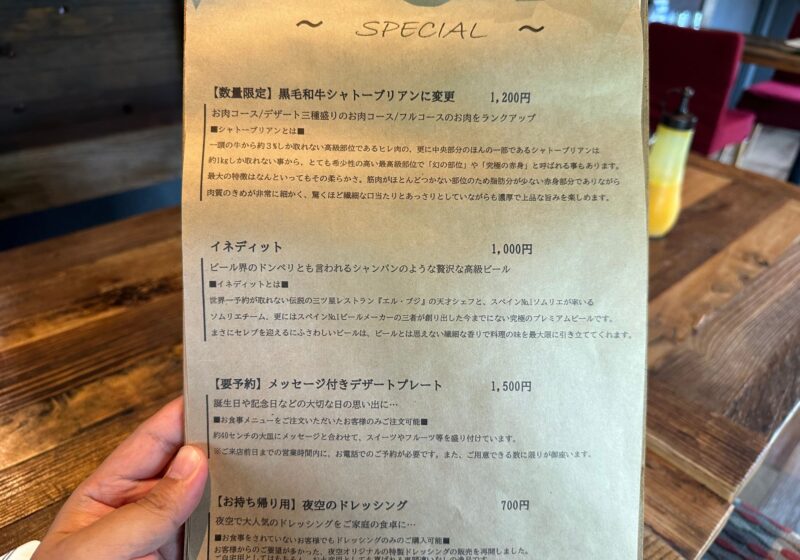 ~ SPECIAL ~
【数量限定】黒毛和牛シャトーブリアンに変更 1,200円
お肉コース/デザート三種盛りのお肉コース/フルコースのお肉をランクアップ
■シャトーブリアンとは■
一頭の牛から約3%しか取れない高級部位であるヒレ肉の、更に中央部分のほんの一部であるシャトーブリアンは
約1kgしか取れない事から、とても希少性の高い最高級部位で「幻の部位」や「究極の赤身」と呼ばれる事もあります。
最大の特徴はなんといってもその柔らかさ。筋肉がほとんどつかない部位のため脂肪分が少ない赤身部分でありながら
肉質のきめが非常に細かく、驚くほど繊細な口当たりとあっさりとしていながらも濃厚で上品な旨みを楽しめます。
イネディット 1,000円
ビール界のドンペリとも言われるシャンパンのような贅沢な高級ビール
■イネディットとは■
世界一予約が取れない伝説の三ツ星レストラン『エル・ブジ』の天才シェフと、スペイン№1ソムリエが率いる
ソムリエチーム、更にはスペイン№1ビールメーカーの三者が創り出した今までにない究極のプレミアムビールです。
まさにセレブを迎えるにふさわしいビールは、ビールとは思えない繊細な香りで料理の味を最大限に引き立ててくれます。
【要予約】メッセージ付きデザートプレート 1,500円
誕生日や記念日などの大切な日の思い出に…
■お食事メニューをご注文いただいたお客様のみご注文可能■
約40センチの大皿にメッセージと合わせて、スイーツやフルーツ等を盛り付けています。
※ご来店前日までの営業時間内に、お電話でのご予約が必要です。また、ご用意できる数に限りが御座います。
【お持ち帰り用】夜空のドレッシング 700円
夜空で大人気のドレッシングをご家庭の食卓に…
■お食事をされていないお客様でもドレッシングのみのご購入可能■
お客様からのご要望が多かった、夜空オリジナルの特製ドレッシングの販売を再開しました。